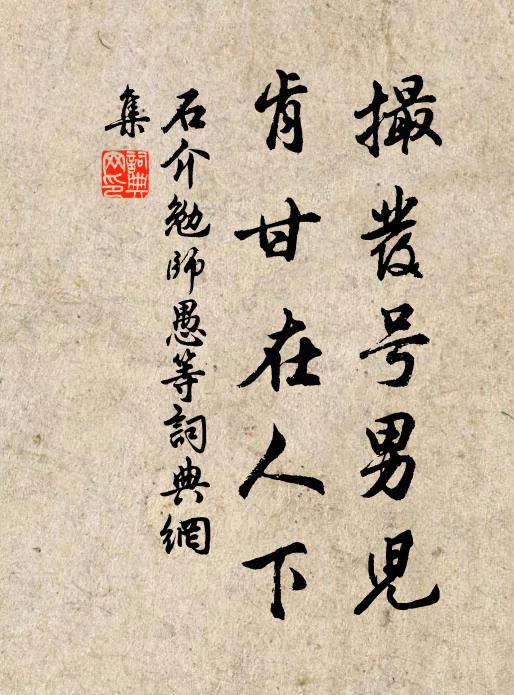 撮發号男兒
肯甘在人下
石介勉師愚等詞典網
集
詞典
网印